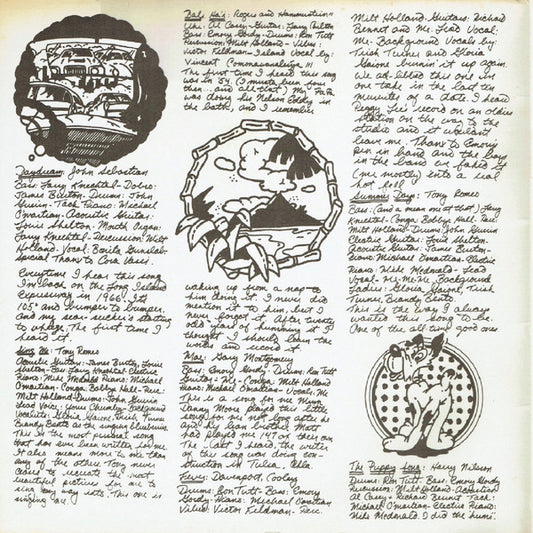 Daydream: John Sebastian
Bass: Larry Knechtel - Dobro:
James Burton - Drums: John
Guerin - Tack Piano: Michael
Omartian - Acoustic Guitar:
Louie Shelton - Mouth Organ:
Larry Knechtel - Percussion: Milt
Holland - Vocal:
Special Thanks to
Everytime I hear this song
I'm back on the Long Island
Expressway in 1966. It's
105° and bumper to bumper,
and my rear seat is starting
to The first time I
heard it.
Sing Me: Tony Romeo
Acoustic Guitars: James Burton, Louie
Shelton - Bass: Larry Knechtel - Electric
Piano: Mike McDonald - Piano: Michael
Omartian - Conga: Bobbye Hall - Perc:
Milt Holland - Drums: John Guerin
Lead Voice: Yours Background
Vocalists: Gloria, Gaione, Trish Turner
Brandy as the singing bluebirds
This is the most personal song
that has ever been written for me
It also means more to me than
any of the others Tony never
ceases to recreate the most
beautiful pictures for me to
sing This one is
singing
Bali Ha'i: Rogers and Hammerstein
Al Casey - Guitar:
Bass: Emory Gordy - Drums: Ron Tutt
Percussion: Milt Holland - Vibes:
Victor Feldman - Island Vocal by:
Vincent
The first time I heard this song
was in
then and all that) My Pa Pa
was doing his Nelson Eddy in
the bath, and I remember
waking up from a nap to
him doing it. I never did
mention it to him, but I
never forgot it. After twenty
odd years of humming it I
thought I should learn the
words and record it.
Mae: Gary Montgomery
Bass: Emory Gordy - Drums: Ron Tutt
Guitar: Me - Conga: Milt Holland
Piano: Michael Omartian - Vocal: Me
This is a song for one Mum
Danny Moore played this little
song for me one night
and his lion brother Matt
had played me 1970 or then on
The last I heard, the writer
of this song was doing con-
struction in Tulsa, Okla.
Fever: Davenport, Cooley
Drums: Ron Tutt - Bass: Emory
Gordy - Piano: Michael Omartian
Vibes: Victor Feldman - Perc:
Milt Holland - Guitars: Richard
Bennet and Me. Lead Vocal:
Me. Background Vocals by:
Trish Turner and Gloria
Gaione burnin' it up again.
We ad-libbed this one in
one take in the last ten
minutes of a date. I heard
Peggy Lee's record on an oldies
station on the way to the
studio and it wouldn't
leave me. Thanks to Emory
pen in hand and the boys
in the band we faked it
(me mostly) into a real
hot roll
Summer Days: Tony Romeo
Bass: (and a mean one at that) Larry
Knechtel - Conga: Bobbye Hall - Perc:
Milt Holland - Drums: John Guerin
Electric Guitar: Louie Shelton -
Acoustic Guitar: James Burton -
Piano: Michael Omartian - Electric
Piano: Mike Mcdonald - Lead
Vocal - Me - Me - Me, Background
Ladies: Gloria, Gaione, Trish
Turner, Brandy
This is the way I always
wanted this song to be.
One of the all time good ones
The Puppy Song: Harry Nilsson
Drums: Ron Tutt - Bass: Emory Gordy
Percussion: Milt Holland - Acoustics:
Al Casey - Richard Bennet - Tack:
Michael Omartian - Electric Piano:
Mike Mcdonald. I did the "hums".